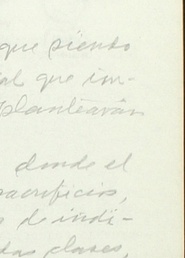 que siendo
al que im-
plantearán
donde el
sacrificios,
s de indi-
das clases,